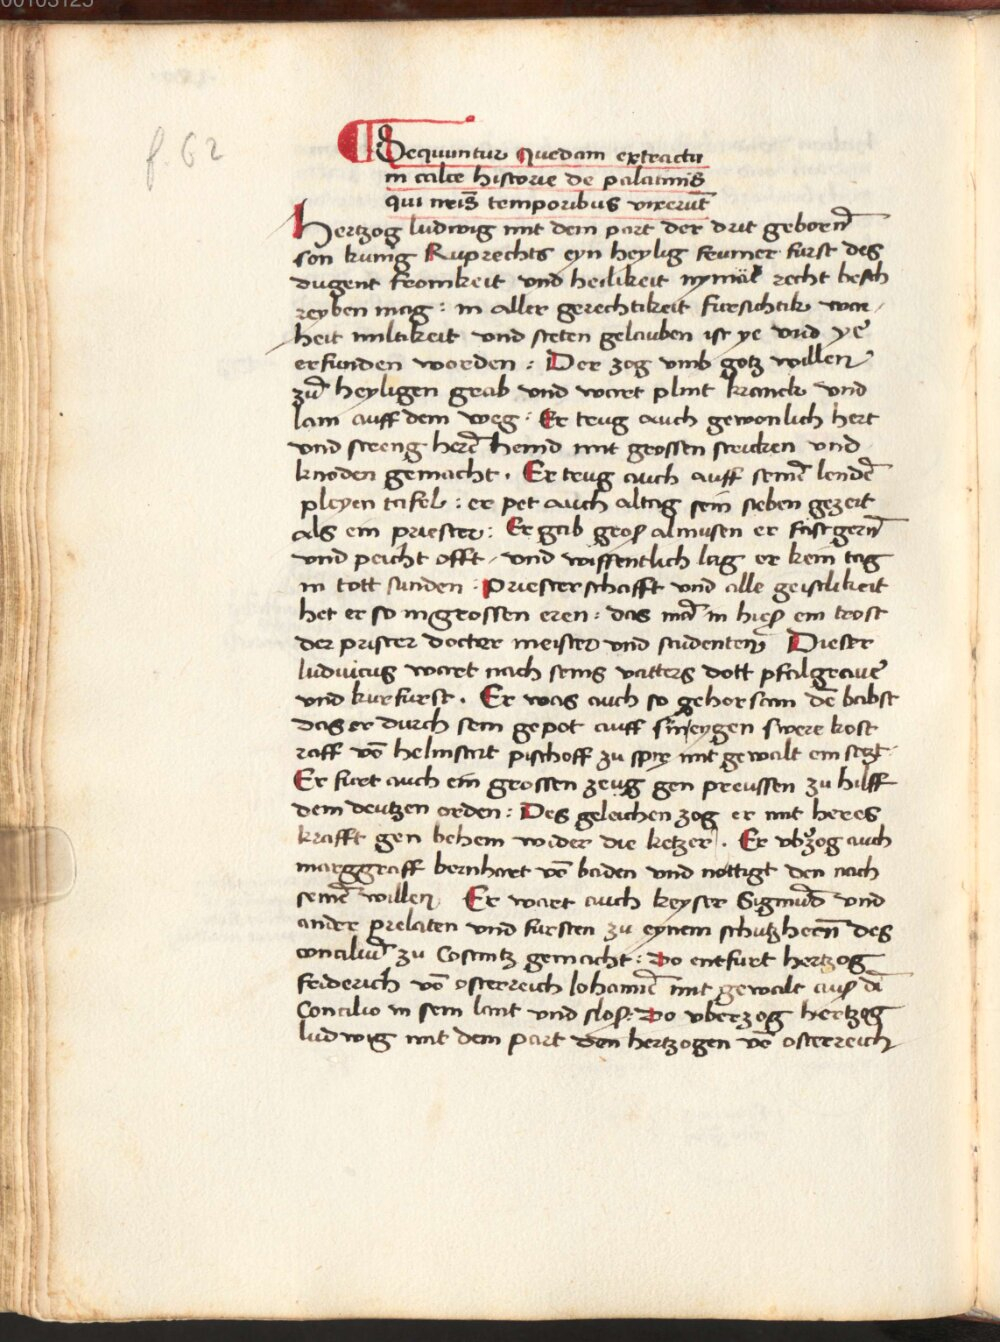 00103125
f. 62
Sequuntur Quedam extracta
in calce historie de palatinis
qui meis̄ temporibus vixerūt
Hertzog ludwig mit dem part der drit geborn̄
son kunig Ruprechts eyn heylig frumer furst des
dugent fromkeit und heilikeit nymāt recht besch
reyben mag : in aller gerechtikeit fursichtik war
heit miltikeit und steten gelauben ist ye und ye
erfunden worden : Der zog umb gotz willen
zū heyligen grab und wart plint kranck und
lam auff dem weg : Er trug auch gewonlich hert
und streng herē hemd mit grossen stricken und
knoden gemacht . Er trug auch auff seinē lendē
pleyen tafel : er pet auch altag sein sieben gezeit
als ein priester : Er gab gros almusen er fast gern̄
und peicht offt , und wissentlich lag er kein tag
in tott sunden : Priesterschafft und alle geistlikeit
het er so in grossen eren : das mā in hies ein trost
der prister doctor meister und studenten Dieser
ludvicus wart nach seins vatters dott pfalgrave
und kurfurst . Er was auch so gehorsam dē babst
das er durch sein gepot auff sein eygen swere kost
raff vō helmstart pischoff zu spir mit gewalt ein setzt
Er furt auch ein grossen zeug gen preussen zu hilff
dem deutzen orden : Des geleichen zog er mit heres
krafft gen behem wider die ketzer . Er ubzog auch
marggraff bernhart vō baden und nottigt den nach
seinē willen Er wart auch keyser Sigmūd und
ander prelaten und fursten zu eynem schutzhern̄ des
conciliū zu Costintz gemacht : Do entfurt hertzog
friderich vō osterreich Iohannē mit gewalt aus dē
Concilio in sein lant und slos : Do uberzog hertzog
ludwig mit dem part den hertzogen vō osterreich